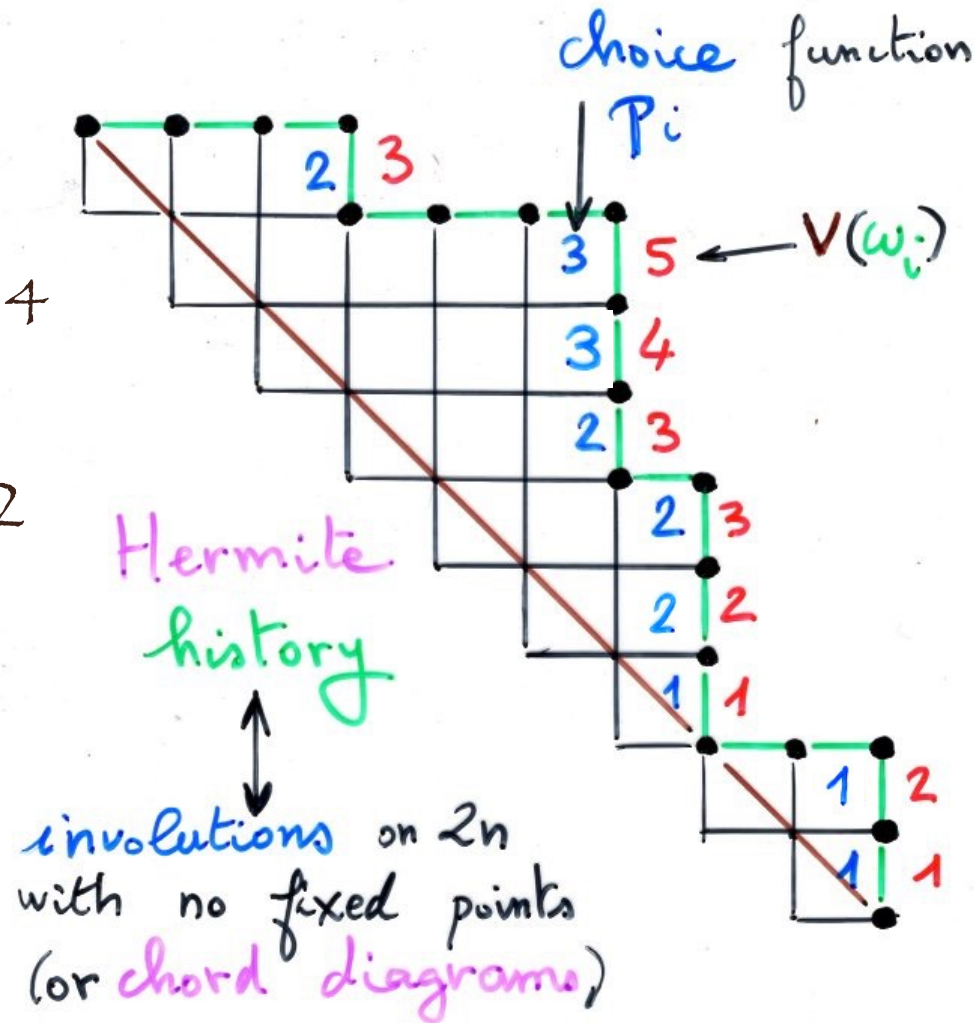 choice function
Pi
2 3
3 5 V(ωi)
4
3 4
2 3
2
2 3
Hermite
2 2
history
1 1
1 2
involutions on 2n
1 1
with no fixed points
(or chord diagrams)